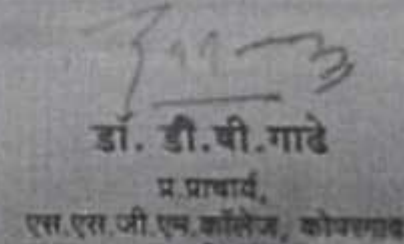 डॉ. डी.बी.गाढे
प्र.प्राचार्य,
एस.एस.जी.एम.कॉलेज, कोपरगाव